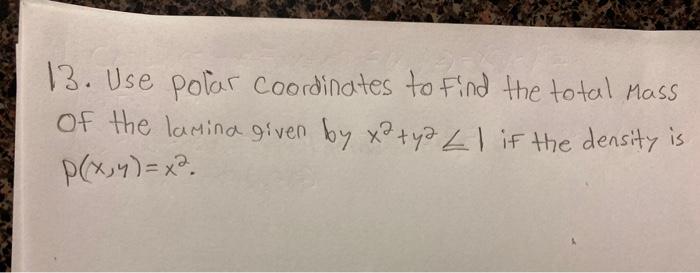 13. Use polar coordinates to find the total Mass
of the lamina given by x²+y² ∠ 1 if the density is
p(x,y)=x².